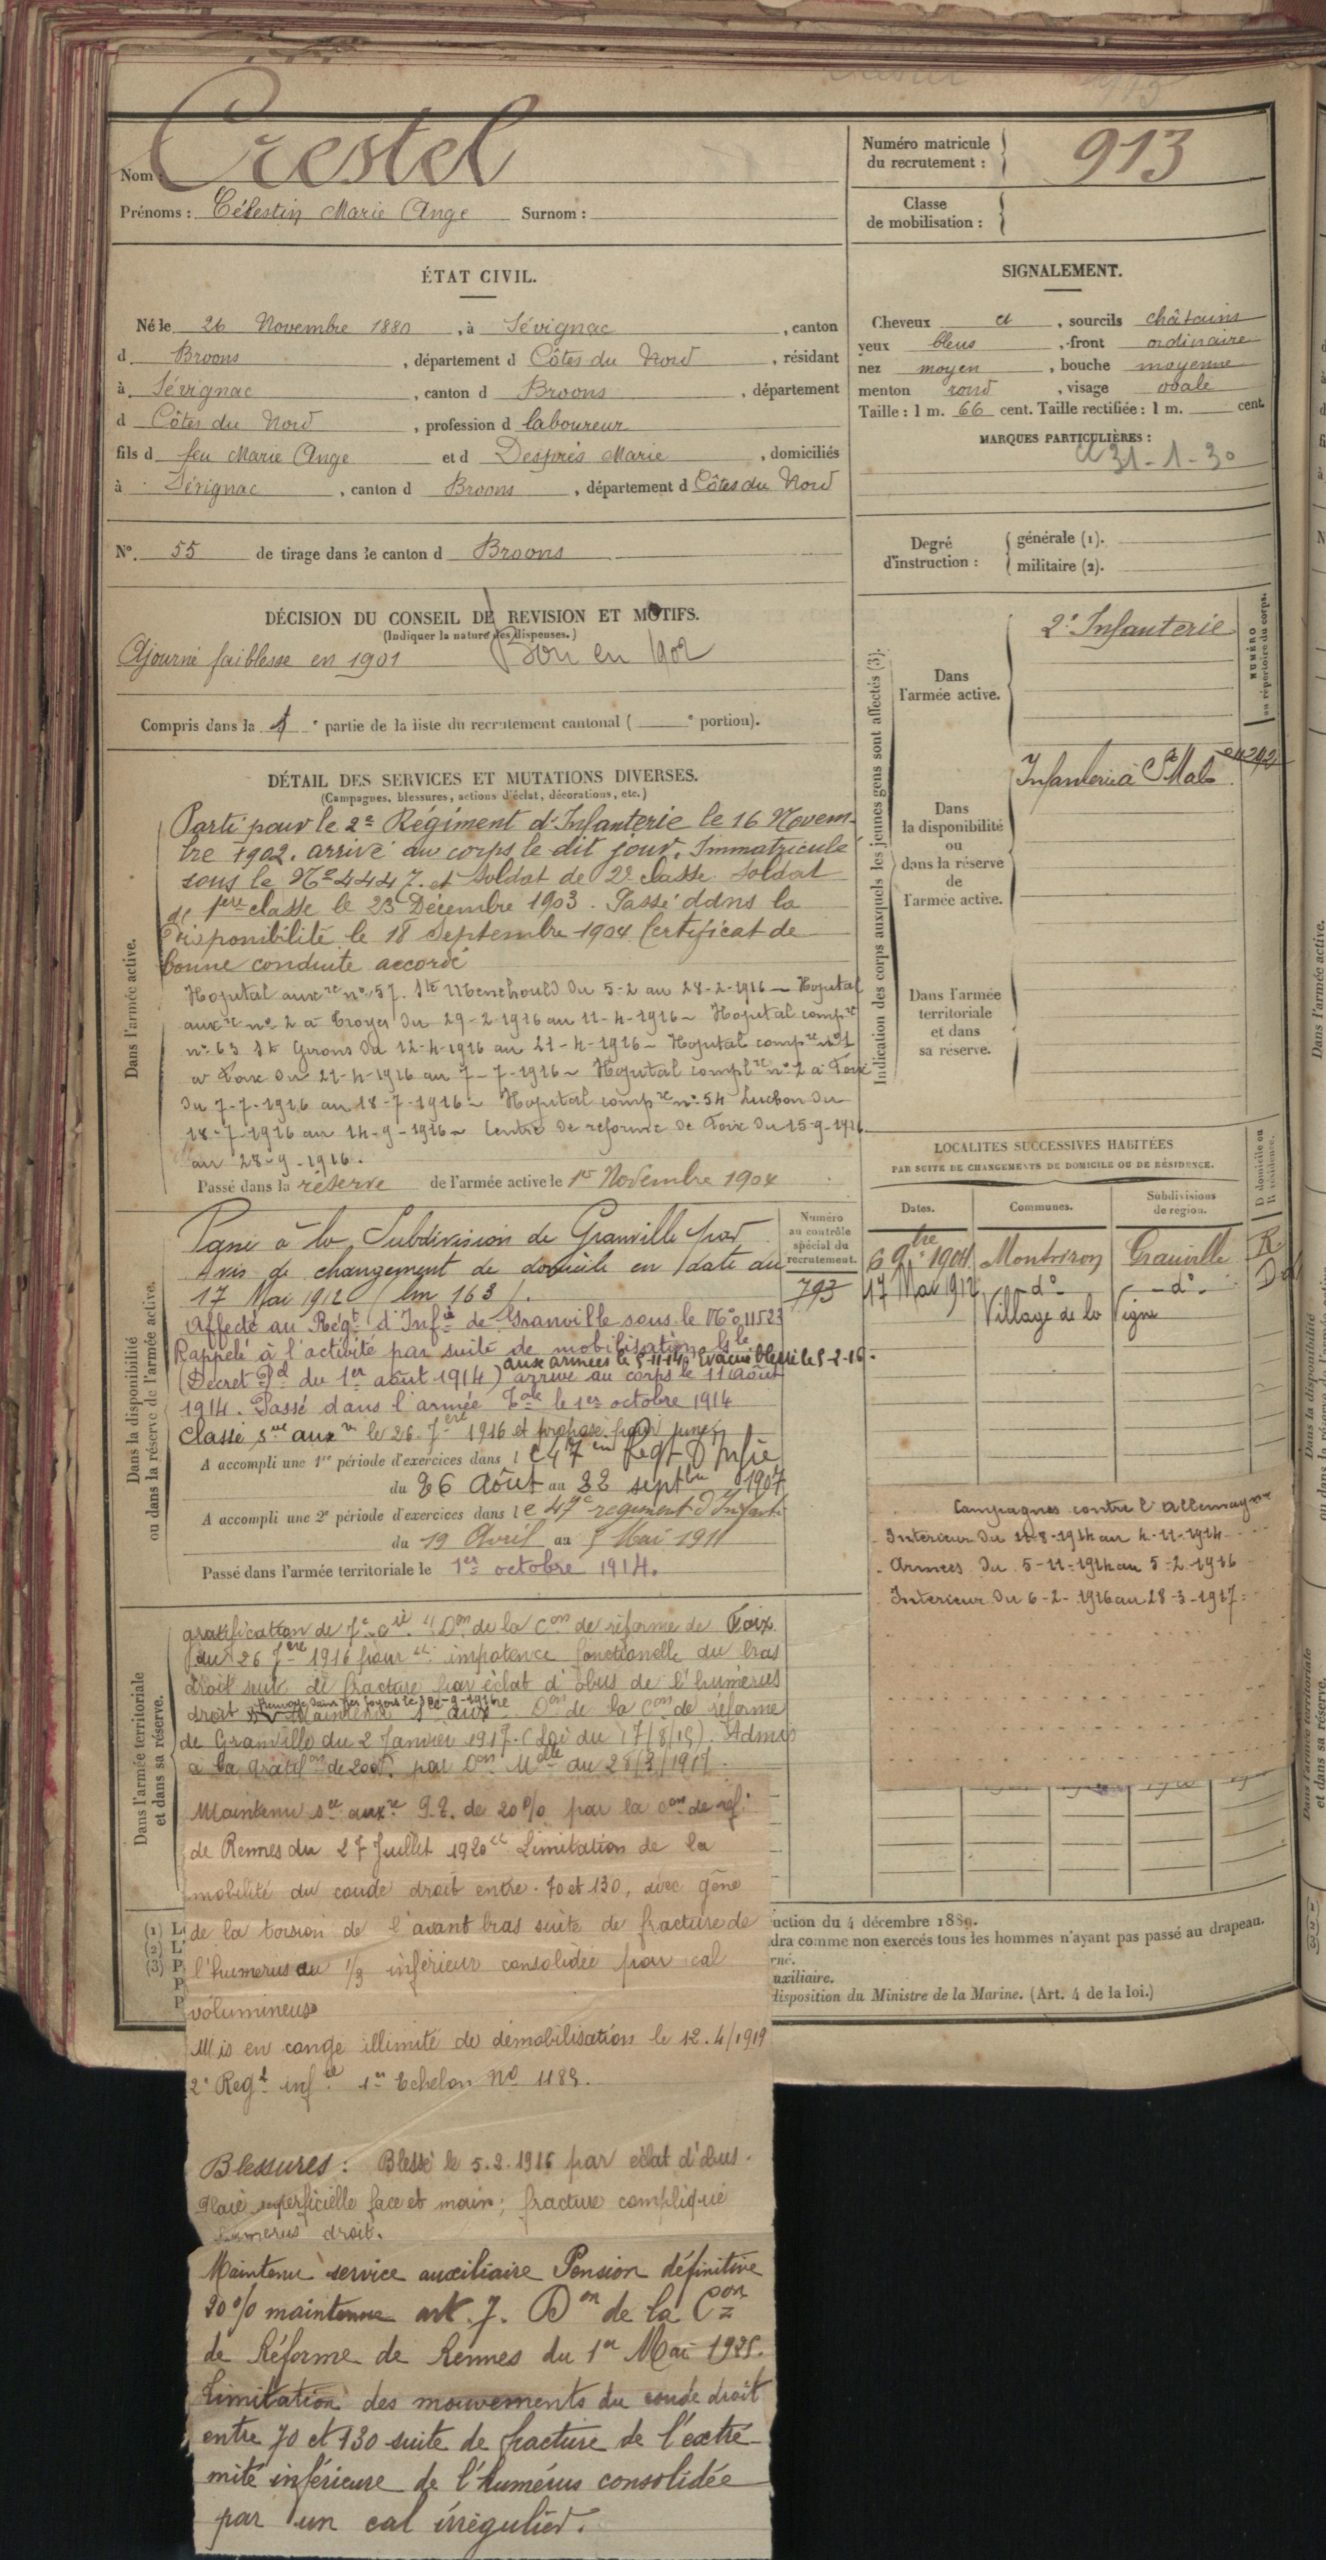 Nom : Crestel
Prénoms : Célestin Marie Ange Surnom :
Numéro matricule
du recrutement : 913
Classe
de mobilisation :
ÉTAT CIVIL.
Né le 26 Novembre 1880, à Sévignac, canton
d Broons, département d Côtes du Nord, résidant
à Sévignac, canton d Broons, département
d Côtes du Nord, profession d laboureur
fils d feu Marie Ange et d Després Marie, domiciliés
à Sévignac, canton d Broons, département d Côtes du Nord
N°. 55 de tirage dans le canton d Broons
SIGNALEMENT.
Cheveux et, sourcils châtains
yeux bleus, front ordinaire
nez moyen, bouche moyenne
menton rond, visage ovale
Taille : 1 m. 66 cent. Taille rectifiée : 1 m. cent.
MARQUES PARTICULIÈRES :
31-1-30
Degré
d'instruction :
générale (1).
militaire (2).
DÉCISION DU CONSEIL DE REVISION ET MOTIFS.
(Indiquer la nature des dispenses.)
Ajourné faiblesse en 1901 Bon en 1902
Compris dans la partie de la liste du recrutement cantonal ( e portion).
Indication des corps auxquels les jeunes gens sont affectés (3).
NUMÉRO
au répertoire du corps.
Dans
l'armée active.
2e Infanterie
Dans
la disponibilité
ou
dans la réserve
de
l'armée active.
Infanterie à St Malo
Dans l'armée
territoriale
et dans
sa réserve.
DÉTAIL DES SERVICES ET MUTATIONS DIVERSES.
(Campagnes, blessures, actions d'éclat, décorations, etc.)
Dans l'armée active.
Parti pour le 2e Régiment d'Infanterie le 16 Novem-
bre 1902. arrivé au corps le dit jour. Immatriculé
sous le No 4447. et soldat de 2e classe. Soldat
de 1ere classe le 23 Décembre 1903. Passé dans la
disponibilité le 18 Septembre 1904 Certificat de
bonne conduite accordé
Hopital auxre no 57. Ste Menehould du 5-2 au 28-2-1916 - Hopital
auxre no 2 à Troyes du 29-2-1916 au 11-4-1916 - Hopital compre
no 63 St Girons du 12-4-1916 au 21-4-1916 - Hopital compre no 1
à Foix du 21-4-1916 au 7-7-1916 - Hopital complre no 2 à Foix
du 7-7-1916 au 18-7-1916 - Hopital compre no 54 Luchon du
18-7-1916 au 14-9-1916 - Centre de reforme de Foix du 15-9-1916
au 28-9-1916.
Passé dans la réserve de l'armée active le 1er Novembre 1904
LOCALITÉS SUCCESSIVES HABITÉES
PAR SUITE DE CHANGEMENTS DE DOMICILE OU DE RÉSIDENCE.
Dates. Communes. Subdivisions
de région.
D domicile ou
R résidence.
6 9bre 1904 Montviron Granville R.
17 Mai 1912 -do- -do- D
Village de la Vigne
Numéro
au contrôle
spécial du
recrutement.
793
Dans la disponibilité
ou dans la réserve de l'armée active.
à la Subdivision de Granville par
Avis de changement de domicile en date du
17 Mai 1912
Affecté au Régt d'Infie de Granville sous le No 011523
Rappelé à l'activité par suite de mobilisation Gle
aux armées le 5-11-14. Evacué blessé le 5-2-16.
(Decret Pd du 1er août 1914) arrivé au corps le 11 août
1914. Passé dans l'armée Tale le 1er octobre 1914
Classé sce auxre le 26 7bre 1916 et proposé pour
A accompli une 1re période d'exercices dans le 47em Regt d'Infie
du 26 Août au 22 septbre 1907
A accompli une 2e période d'exercices dans le 47e regiment d'Infantie
du 19 Avril au 5 Mai 1911
Passé dans l'armée territoriale le 1er octobre 1914.
Campagnes contre l'Allemagne
Intérieur du 11-8-1914 au 4-11-1914
Armées du 5-11-1914 au 5-2-1916
Intérieur du 6-2-1916 au 28-3-1917
Dans l'armée territoriale
et dans sa réserve.
gratification de 7e cie Don de la Con de réforme de Foix
du 26 7bre 1916 pour impotence fonctionelle du bras
droit suite de fracture par éclat d'obus de l'humérus
Renvoyé dans ses foyers le -9-1916
droit Maintenu se auxre Don de la Con de réforme
de Granville du 2 Janvier 1917. (Loi du 17/8/15). Admis
à la gratifon de 200f. par Don Mlle du 28/3/1917.
Maintenu sce auxre P.P. de 20% par la Con de réf.
de Rennes du 27 Juillet 1920 Limitation de la
mobilité du coude droit entre 70 et 130, avec gêne
de la torsion de l'avant bras suite de fracture de
l'humerus au 1/3 inférieur consolidée par cal
volumineux
Mis en congé illimité de démobilisation le 12.4/1919
2e Regt infie 1er Echelon No 1183.
uction du 4 décembre 1889.
dra comme non exercés tous les hommes n'ayant pas passé au drapeau.
rné.
uxiliaire.
disposition du Ministre de la Marine. (Art. 4 de la loi.)
Blessures : Blessé le 5.2.1916 par éclat d'obus.
Plaie superficielle face et main ; fracture compliquée
humerus droit.
Maintenu service auxiliaire Pension définitive
20% maintenue art. 7. Don de la Con
de Réforme de Rennes du 1er Mai 1925.
Limitation des mouvements du coude droit
entre 70 et 130 suite de fracture de l'extré-
mité inférieure de l'humérus consolidée
par un cal irrégulier.